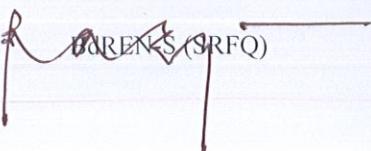 BdREN-S (SRFQ)